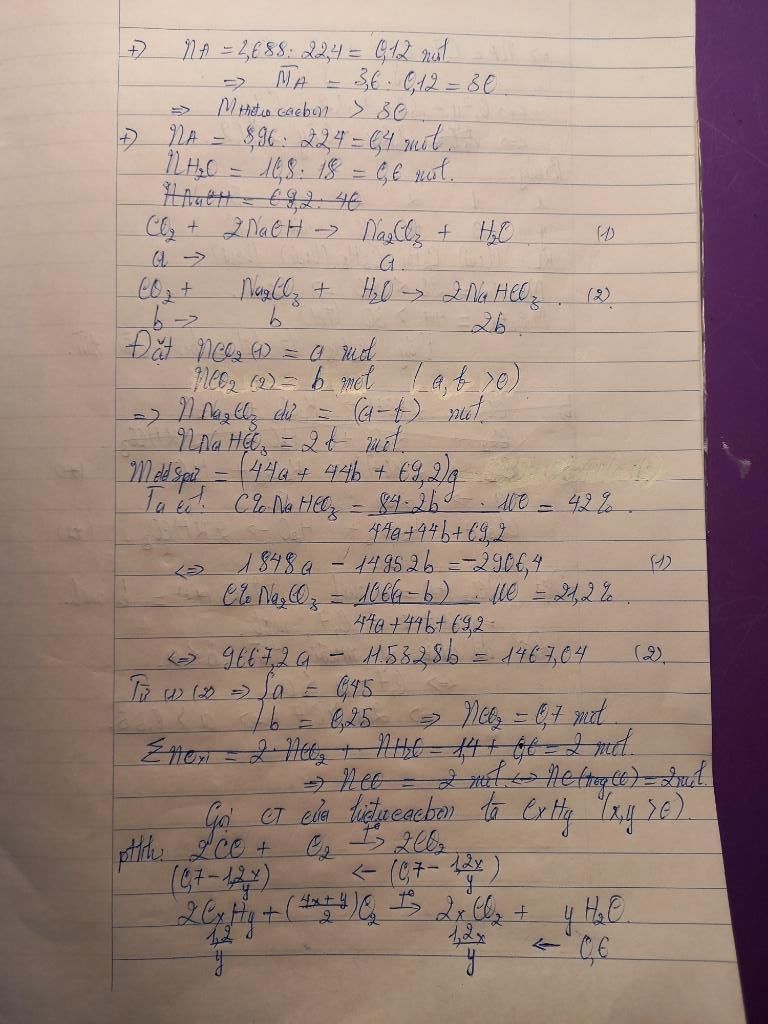 +) nA = 2,688 : 22,4 = 0,12 mol
=> M̅A = 3,6 : 0,12 = 30
=> Mhiđro cacbon > 30
+) nA = 8,96 : 22,4 = 0,4 mol.
nH2O = 10,8 : 18 = 0,6 mol.
nNaOH = 69,2 : 40
CO2 + 2NaOH -> Na2CO3 + H2O (1)
a -> a
CO2 + Na2CO3 + H2O -> 2NaHCO3. (2)
b -> b 2b
Đặt nCO2 (1) = a mol
nCO2 (2) = b mol (a, b >0)
=> nNa2CO3 dư = (a-b) mol.
nNaHCO3 = 2b mol.
mdd spứ = (44a + 44b + 69,2)g
Ta có: C% NaHCO3 = 84.2b / 44a+44b+69,2 . 100 = 42%.
<=> 1848a - 14952b = -2906,4 (1)
C% Na2CO3 = 106(a-b) / 44a+44b+69,2 . 100 = 21,2%.
<=> 9667,2a - 11532,8b = 1467,04 (2).
Từ (1) (2) => { a = 0,45
b = 0,25 => nCO2 = 0,7 mol
Σn oxi = 2.nCO2 + nH2O = 1,4 + 0,6 = 2 mol.
=> nCO = 2 mol <=> nC (trog CO) = 2 mol.
Gọi CT của hiđrocacbon là CxHy (x,y >0).
pthh: 2CO + O2 -t°-> 2CO2
(0,7 - 1,2x/y) <- (0,7 - 1,2x/y)
2CxHy + (4x+y/2)O2 -t°-> 2xCO2 + yH2O
1,2/y 1,2x/y <- 0,6